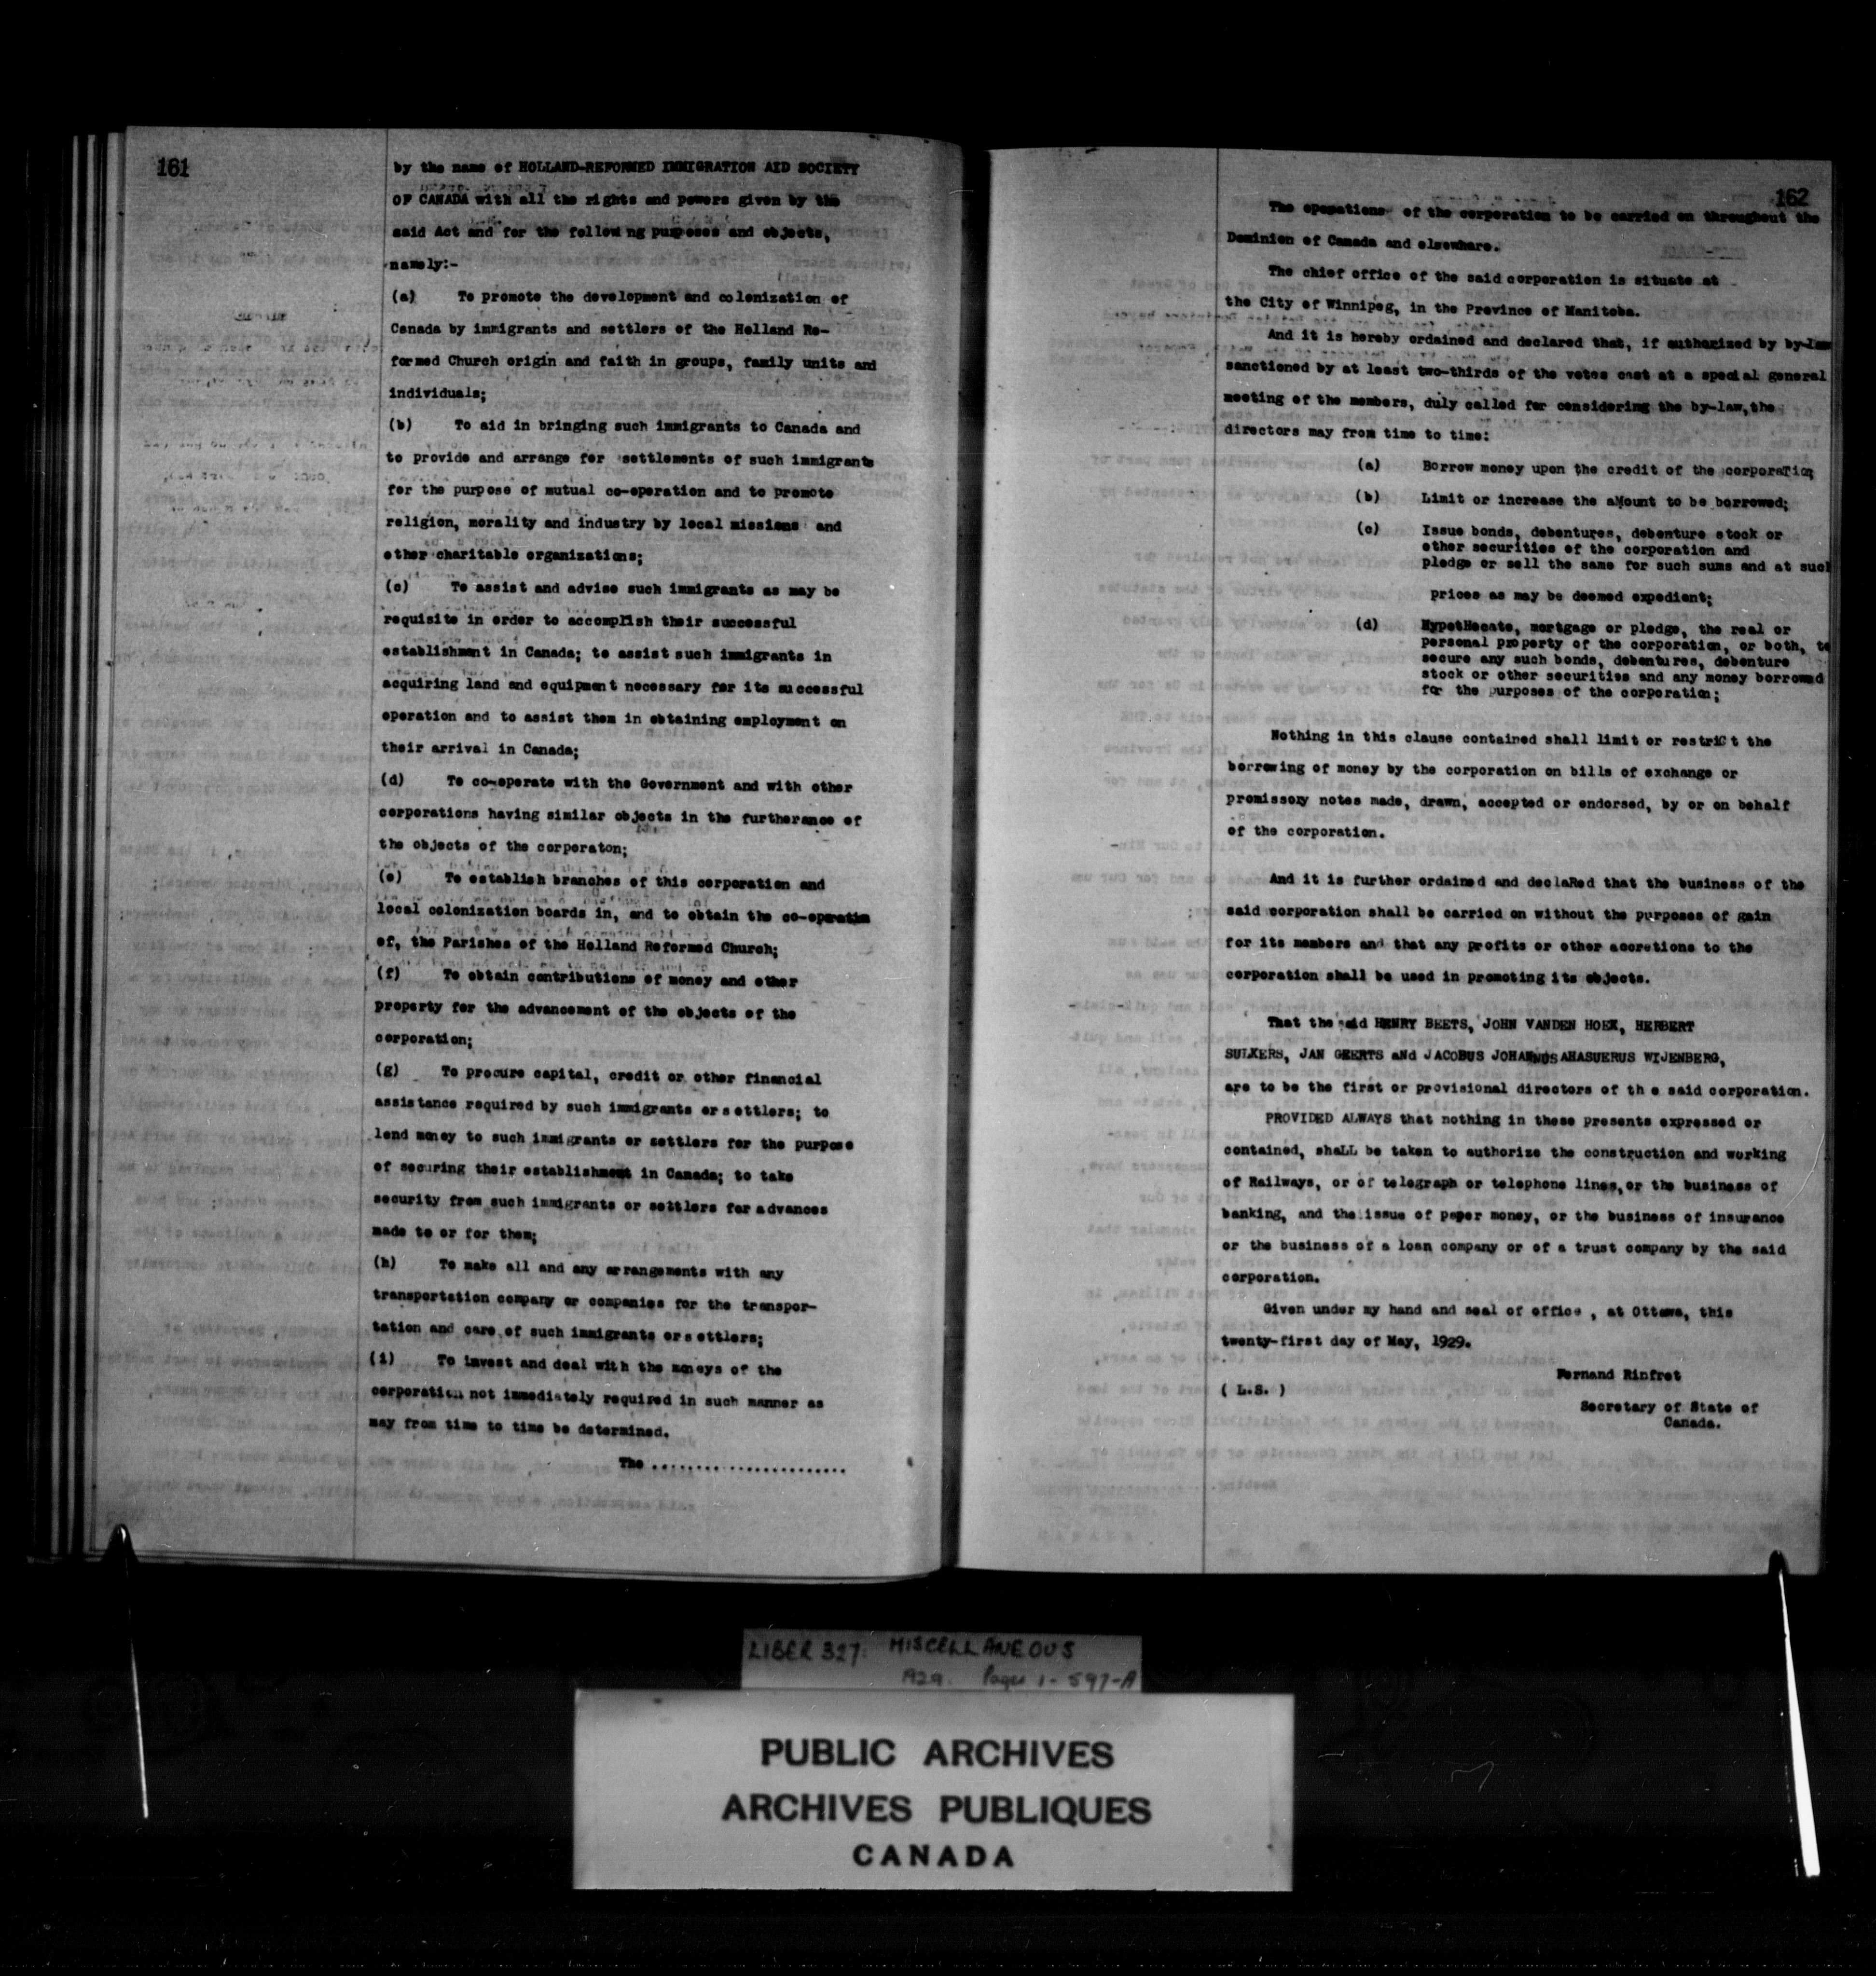 161
by the name of HOLLAND-REFORMED IMMIGRATION AID SOCIETY
OF CANADA with all the rights and powers given by the
said Act and for the following purposes and objects,
namely:-
(a) To promote the development and colonization of
Canada by immigrants and settlers of the Holland Re-
formed Church origin and faith in groups, family units and
individuals;
(b) To aid in bringing such immigrants to Canada and
to provide and arrange for settlements of such immigrants
for the purpose of mutual co-operation and to promote
religion, morality and industry by local missions and
other charitable organizations;
(c) To assist and advise such immigrants as may be
requisite in order to accomplish their successful
establishment in Canada; to assist such immigrants in
acquiring land and equipment necessary for its successful
operation and to assist them in obtaining employment on
their arrival in Canada;
(d) To co-operate with the Government and with other
corporations having similar objects in the furtherance of
the objects of the corporaton;
(e) To establish branches of this corporation and
local colonization boards in, and to obtain the co-operation
of, the Parishes of the Holland Reformed Church;
(f) To obtain contributions of money and other
property for the advancement of the objects of the
corporation;
(g) To procure capital, credit or other financial
assistance required by such immigrants or settlers; to
lend money to such immigrants or settlers for the purpose
of securing their establishment in Canada; to take
security from such immigrants or settlers for advances
made to or for them;
(h) To make all and any arrangements with any
transportation company or companies for the transpor-
tation and care of such immigrants or settlers;
(i) To invest and deal with the moneys of the
corporation not immediately required in such manner as
may from time to time be determined.
The ......................
162
The operations of the corporation to be carried on throughout the
Dominion of Canada and elsewhare.
The chief office of the said corporation is situate at
the City of Winnipeg, in the Province of Manitoba.
And it is hereby ordained and declared that, if authorized by by-law
sanctioned by at least two-thirds of the votes cast at a special general
meeting of the members, duly called for considering the by-law,the
directors may from time to time:
(a) Borrow money upon the credit of the corporation
(b) Limit or increase the aMount to be borrowed;
(c) Issue bonds, debentures, debenture stock or
other securities of the corporation and
pledge or sell the same for such sums and at such
prices as may be deemed expedient;
(d) HypotHecate, mortgage or pledge, the real or
personal property of the corporation, or both, to
secure any such bonds, debentures, debenture
stock or other securities and any money borrowed
for the purposes of the corporation;
Nothing in this clause contained shall limit or restriCt the
borrowing of money by the corporation on bills of exchange or
promissory notes made, drawn, accepted or endorsed, by or on behalf
of the corporation.
And it is further ordained and declaRed that the business of the
said corporation shall be carried on without the purposes of gain
for its members and that any profits or other accretions to the
corporation shall be used in promoting its objects.
That the said HENRY BEETS, JOHN VANDEN HOEK, HERBERT
SULKERS, JAN GEERTS aNd JACOBUS JOHANNUS AHASUERUS WIJENBERG,
are to be the first or provisional directors of the said corporation.
PROVIDED ALWAYS that nothing in these presents expressed or
contained, shaLL be taken to authorize the construction and working
of Railways, or of telegraph or telephone lines,or the business of
banking, and the issue of paper money, or the business of insurance
or the business of a loan company or of a trust company by the said
corporation.
Given under my hand and seal of office , at Ottawa, this
twenty-first day of May, 1929.
Fernand Rinfret
( L.S. )
Secretary of State of
Canada.
LIBER 327: MISCELLANEOUS
1929. Pages 1-597-A
PUBLIC ARCHIVES
ARCHIVES PUBLIQUES
CANADA